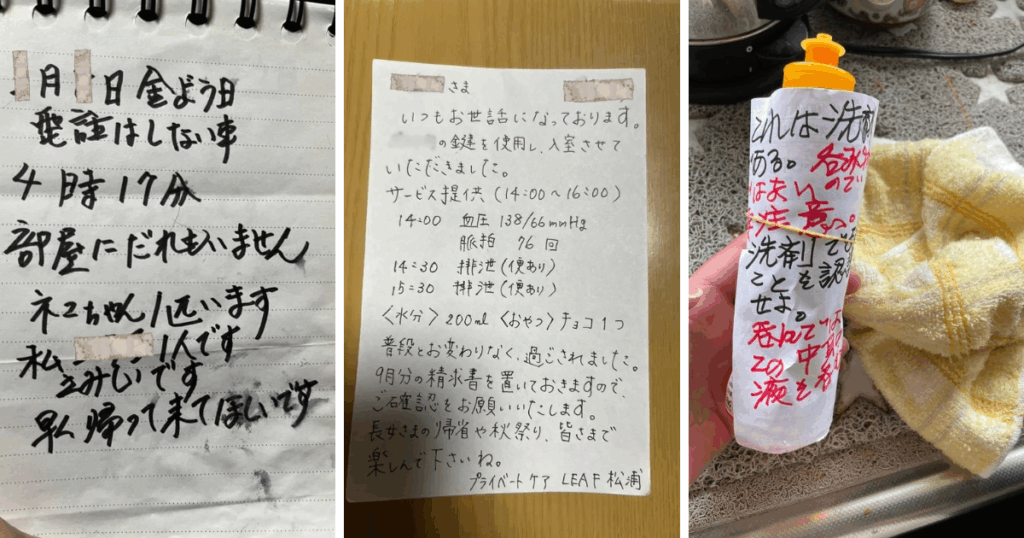 月 日 金よう日
電話はしない事
4時17分
部屋にだれもいません
ネコちゃん1匹います
私 1人です
さみしいです
早く帰って来てほしいです
さま
いつもお世話になっております。
の鍵を使用し、入室させて
いただきました。
サービス提供(14:00~16:00)
14:00 血圧 138/66mmHg
脈拍 76回
14:30 排泄(便あり)
15:30 排泄(便あり)
〈水分〉200ml 〈おやつ〉チョコ1つ
普段とお変わりなく、過ごされました。
9月分の精求書を置いておきますので、
ご確認をお願いいたします。
長女さまの帰省や秋祭り、皆さまで
楽しんで下さいね。
プライベートケア LEAF 松浦
これは洗剤
ある。
ので
はまい
注意。
洗剤で
ことを認
せよ。
呑んで
この中
液を